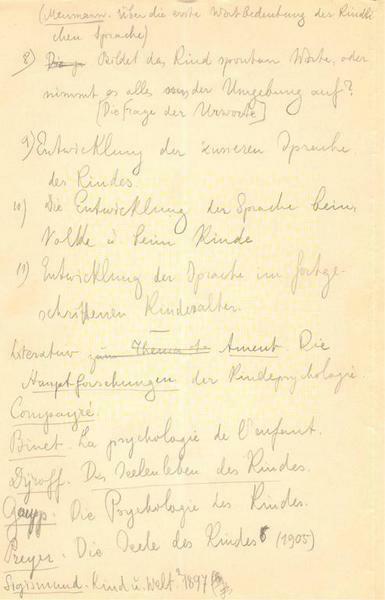 (Meumann. Über die erste Wortbedeutung der Kindli
chen Sprache)
8) Bildet das Kind spontan Worte, oder
nimmt es alles aus der Umgebung auf?
[Die Frage der Urworte]
9) Entwicklung der äusseren Sprache
des Kindes.
10) Die Entwicklung der Sprache beim
Volke u. beim Kinde
11) Entwicklung der Sprache im fortge-
schrittenen Kindesalter.
Literatur zum Thema Ament. Die
Hauptforschungen der Kindepsychologie.
Compayré.
Binet. La psychologie de l'enfant.
Dyroff. Das Seelenleben des Kindes.
Gaupp. Die Psychologie des Kindes.
Preyer. Die Seele des Kindes 6 (1905)
Sigismund. Kind u. Welt. 2 1897